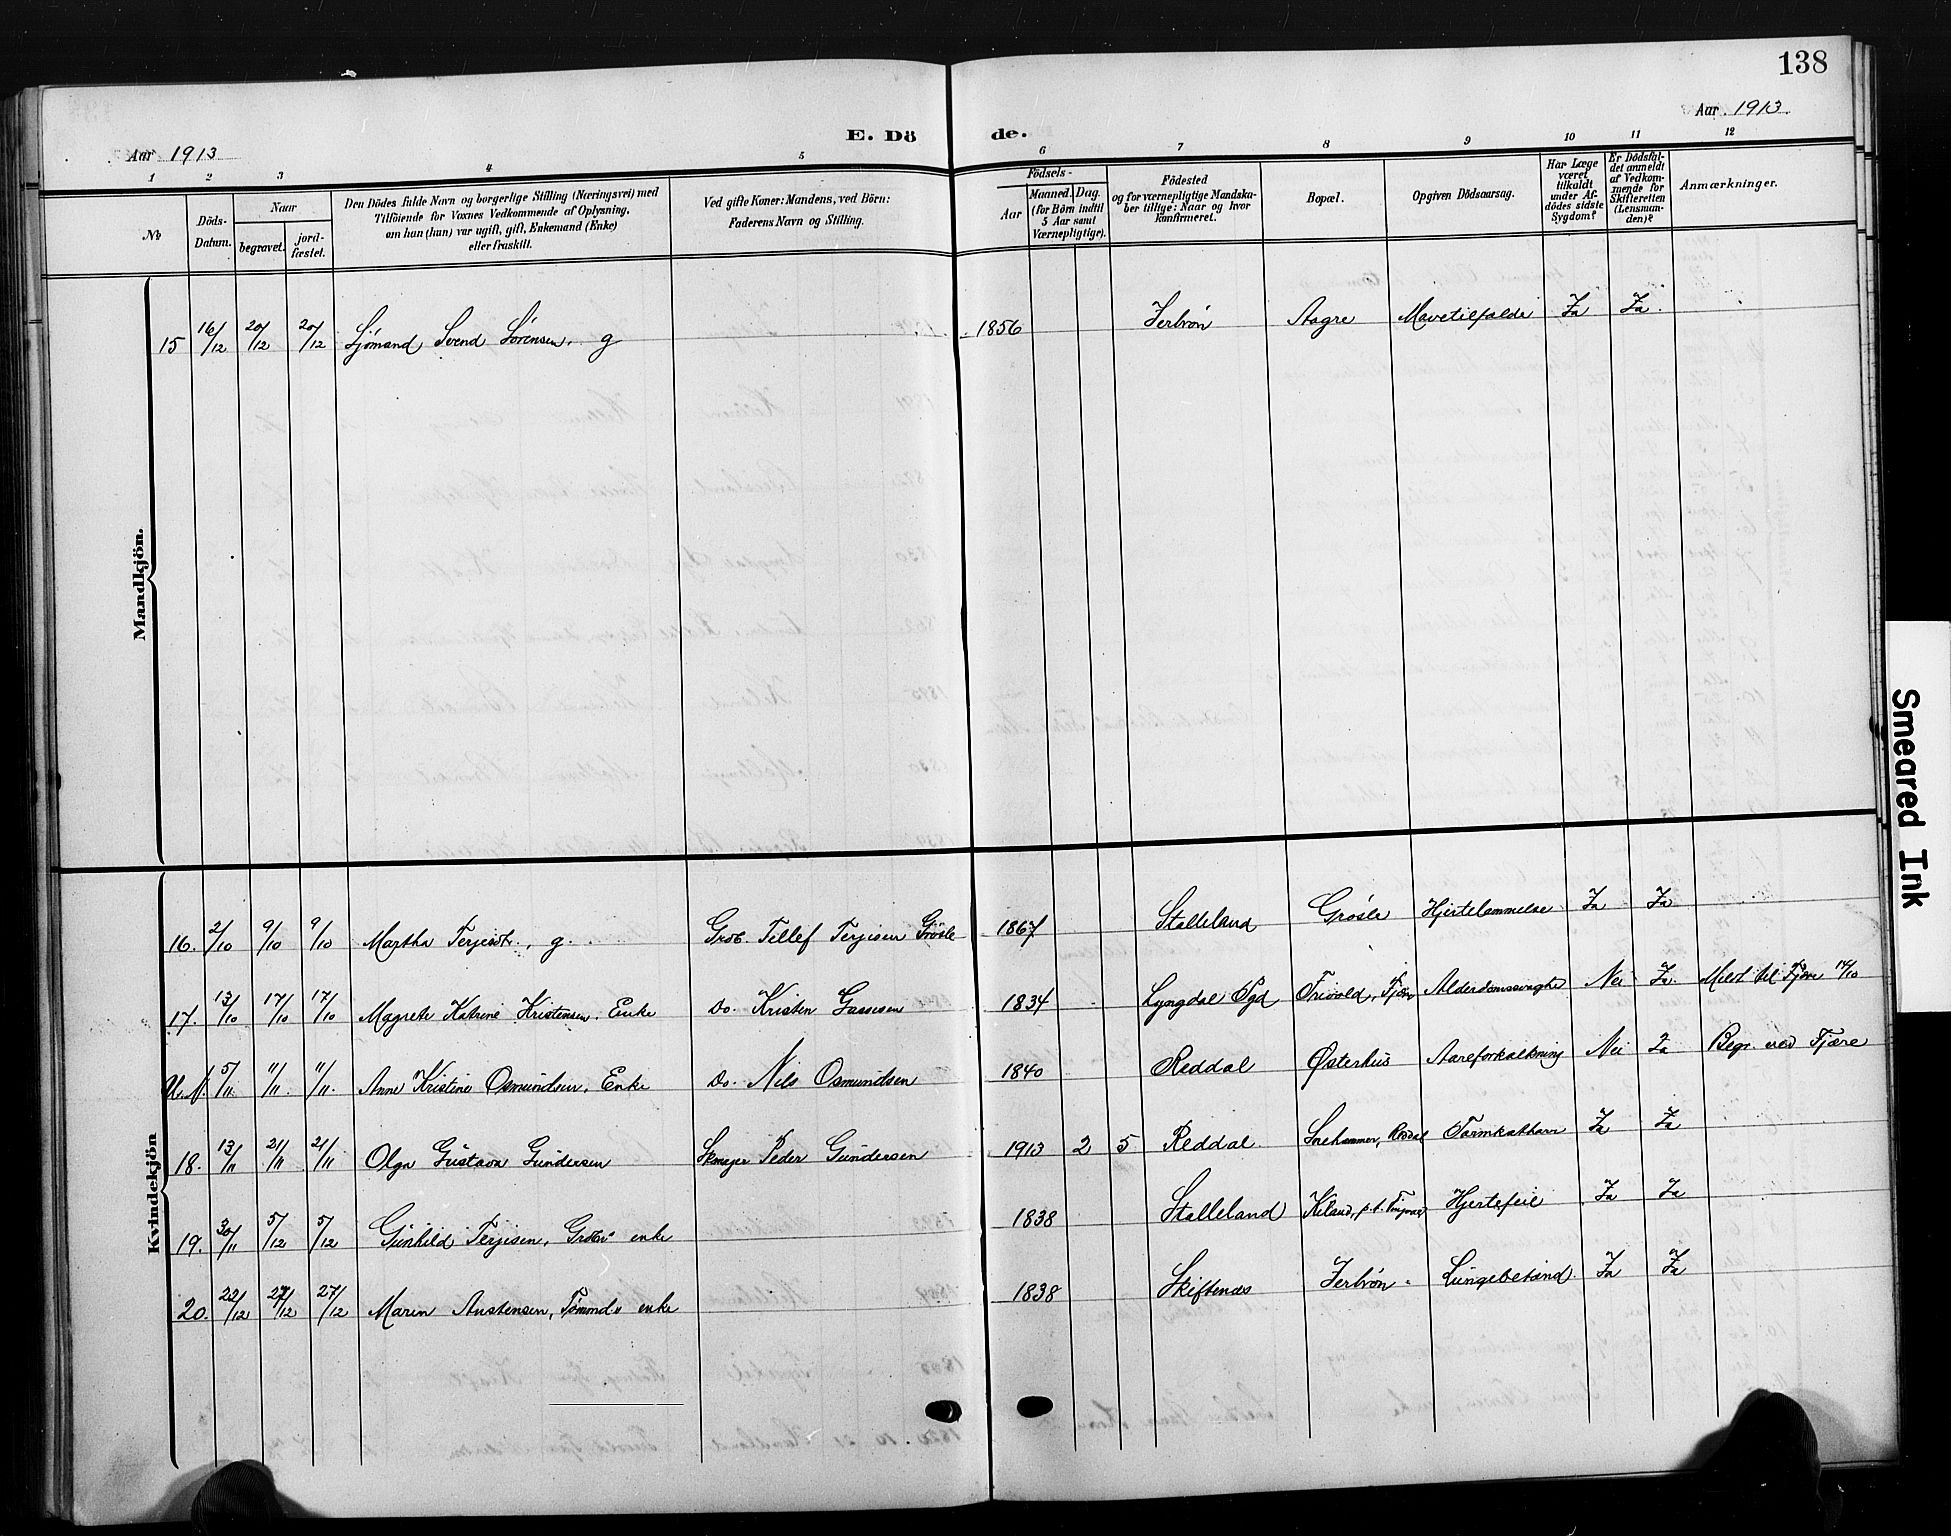 138
Aar 1913
E. Dö de.
Aar 1913
1 2 3 4 5 6 7 8 9 10 11 12
No
Döds-Datum.
Naar
begravet.
jord-fæstet.
Den Dödes fulde Navn og borgerlige Stilling (Næringsvei) med
Tilföiende for Voxnes Vedkommende af Oplysning,
om han (hun) var ugift, gift, Enkemand (Enke)
eller fraskilt.
Ved gifte Koner: Mandens, ved Börn:
Faderens Navn og Stilling.
Födsels-
Aar
Maaned. Dag.
(for Börn indtil
5 Aar samt
Værnepligtige).
Födested
og for værnepligtige Mandska-
ber tillige: Naar og hvor
konfirmeret.
Bopæl.
Opgiven Dödsaarsag.
Har Læge
været
tilkaldt
under Af-
dödes sidste
Sygdom?
Er Dödsfal-
det anmeldt
af Vedkom-
mende for
Skifteretten
(Lensman-
den)?
Anmærkninger.
Mandkjön.
15 16/12 20/12 20/12 Sjømand Svend Sørensen. g 1856 Jerbrøn Aagre Mavetilfælde Ja Ja.
Kvindekjön
16. 2/10 9/10 9/10 Martha Terjesdtr., g. Grdb. Tellef Terjesen Grøsle 1867 Stalleland Grøsle Hjertelammelse Ja Ja
17. 13/10 17/10 17/10 Magrete Katrine Kristensen. Enke Do. Kristen Gassesen 1834 Lyngdal Pgd Trivold, Fjære Alderdomssvaghet Nei Ja. Meldt til Fjære 14/10
U. N. 5/11 11/11 11/11. Anne Kristine Osmundsen, Enke Do. Nils Osmundsen 1840 Reddal Østerhus Aareforkalkning Nei Ja Begr. ved Fjære
18. 13/11 21/11 21/11 Olga Gustava Gundersen Skomager Peder Gundersen 1913 2 5 Reddal. Reddal Tarmkatharr Ja Ja
19. 30/11 5/12 5/12 Gunhild Terjesen, enke 1838 Stalleland Hjertefeil Ja Ja
20. 22/12 27/12 27/12 Maren Anstensen, Tømmdv enke 1838 Skiftenæs Jerbrøn Lungebetænd. Ja Ja
Smeared Ink